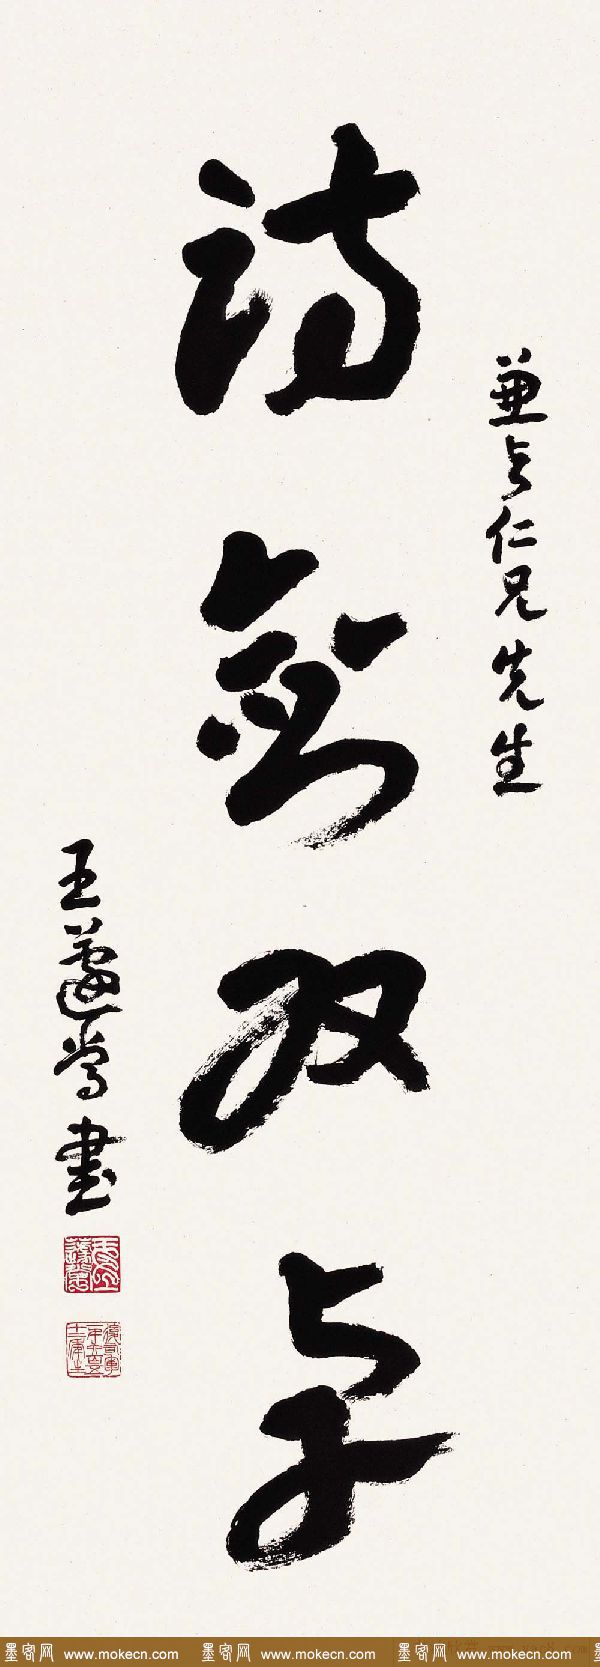 兼与仁兄先生
诗剑双卓
王蘧常书
墨客网 www.mokecn.com 墨客网 www.mokecn.com 墨客网 www.mokecn.com